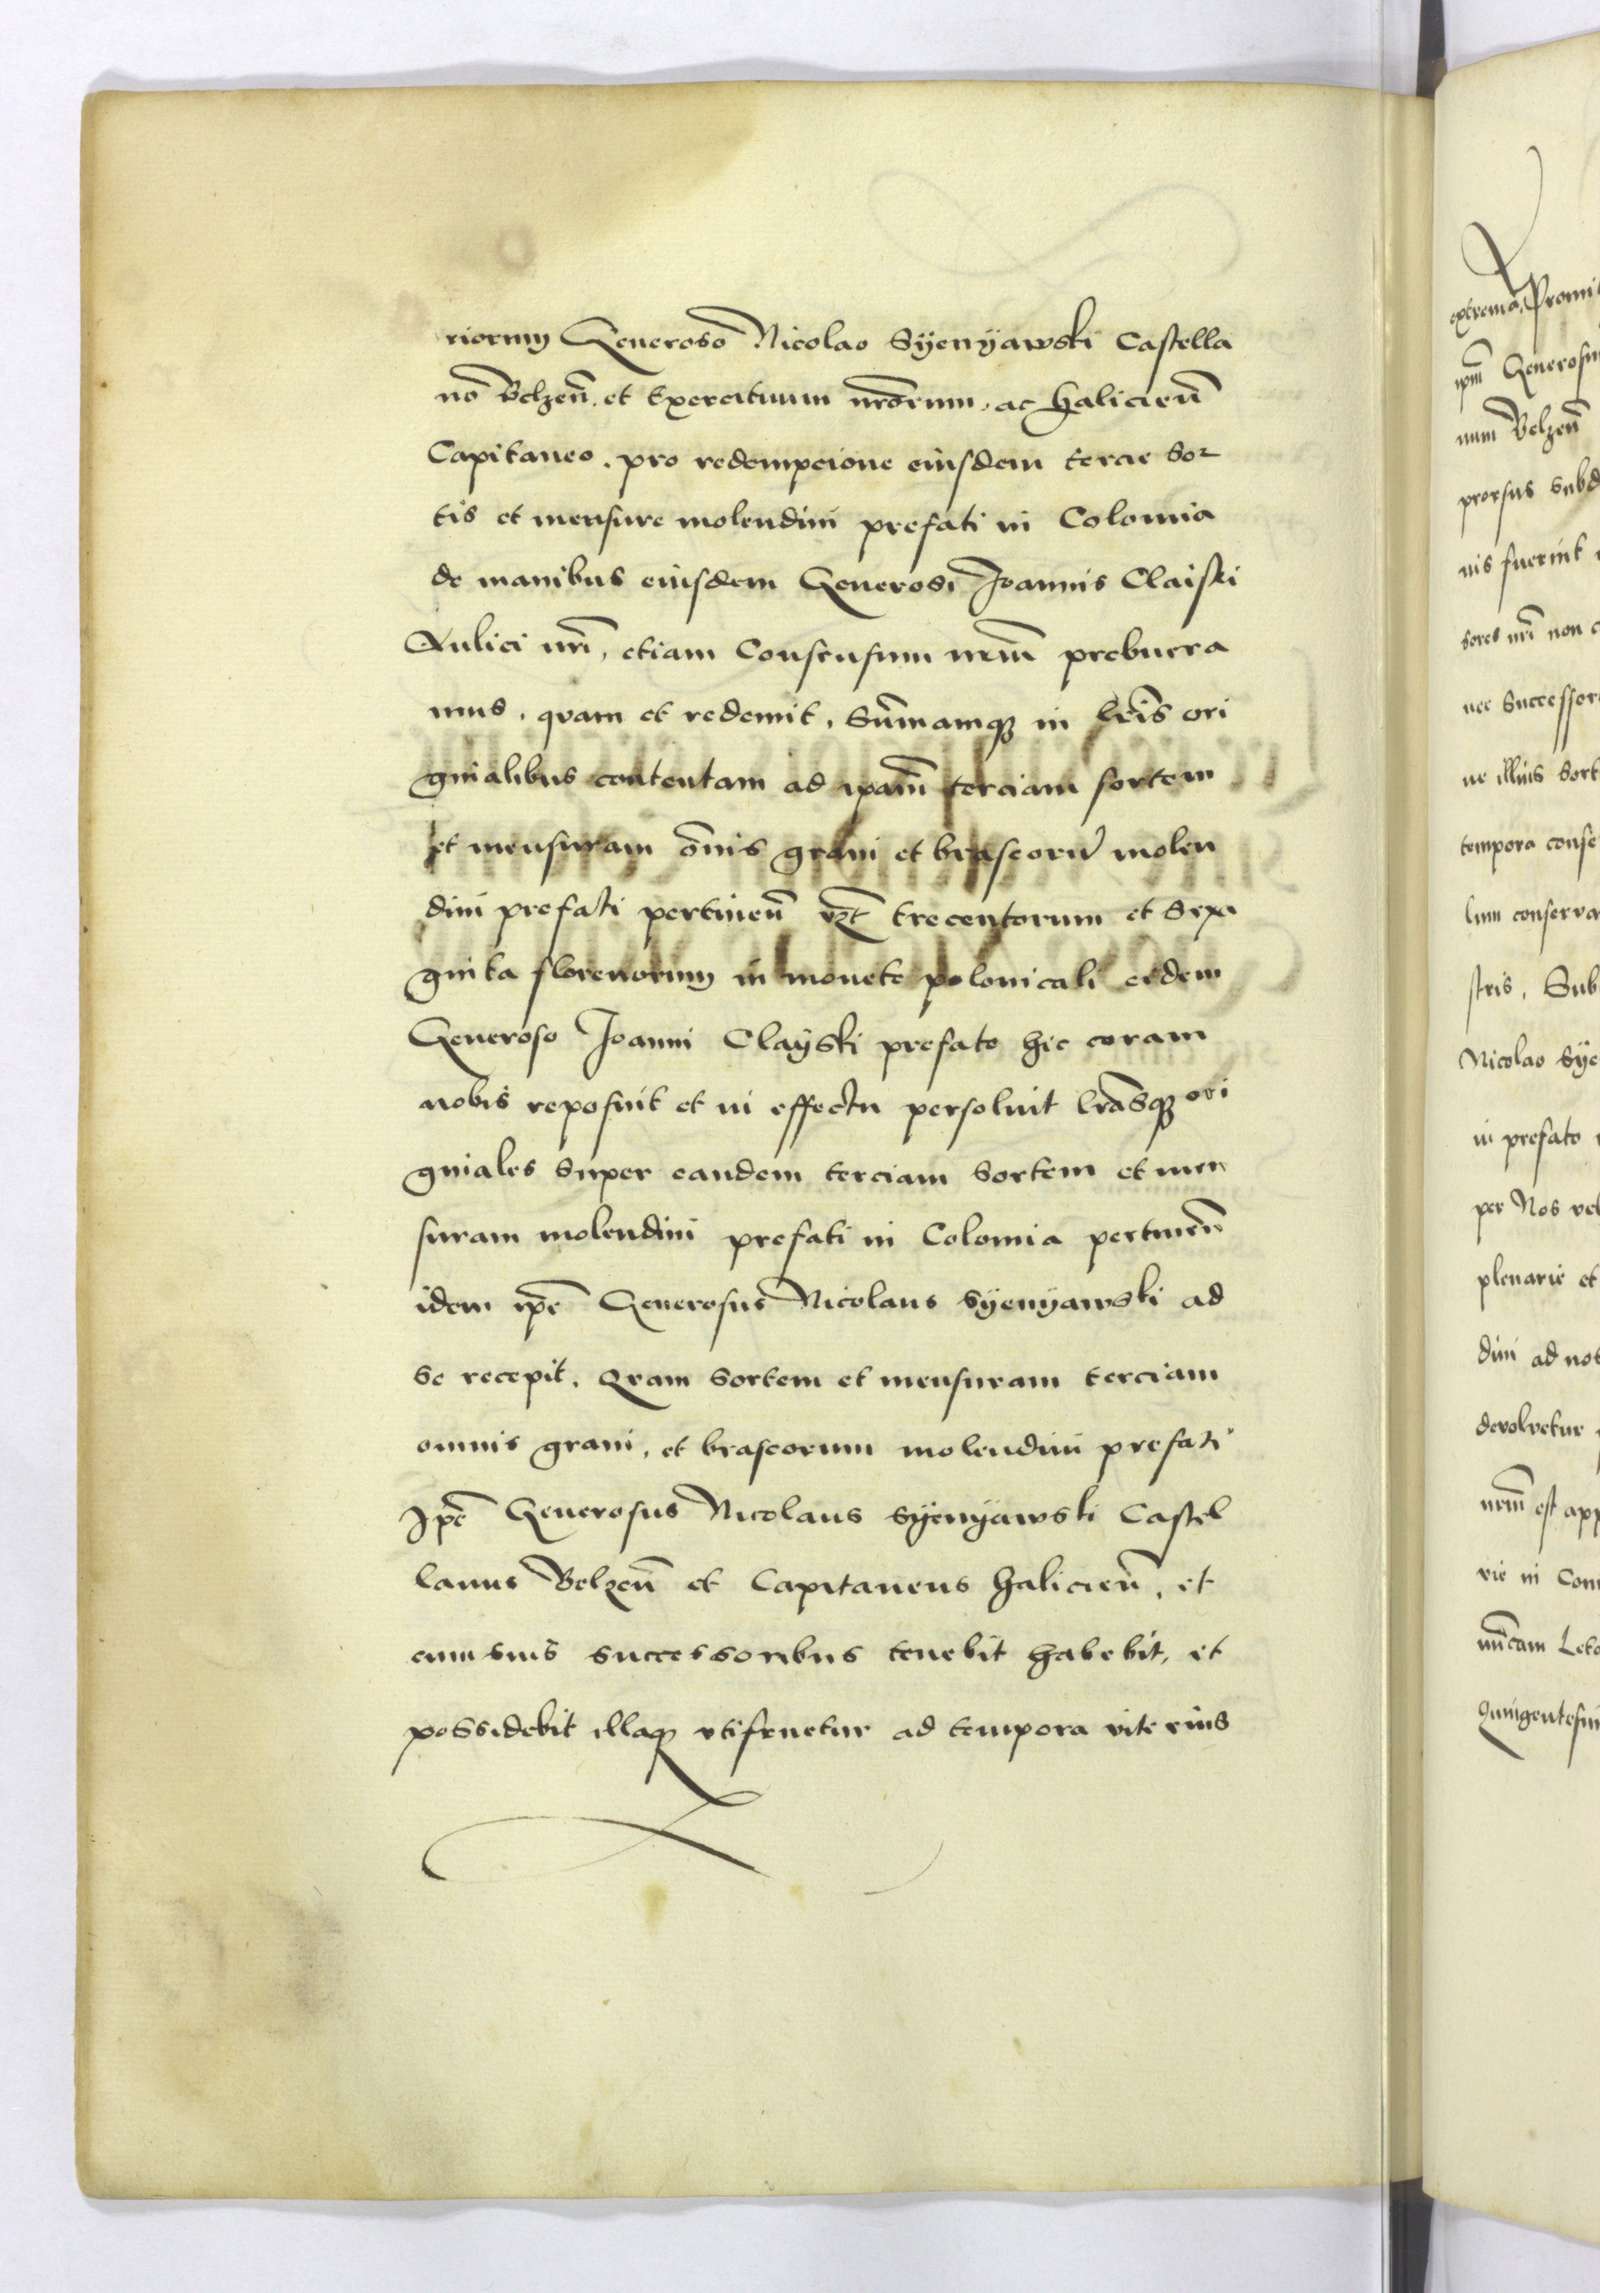 riorum Generoso Nicolao Syenyawski Castella
no Belzen̄. et Exercituum nr̄orum, ac Halicien̄
Capitaneo. pro redempcione eiusdem tercie Sor
tis et mensure molendini prefati in Colomia
de manibus eiusdem Generosi Joannis Claiski
Aulici nr̄i, etiam Consensum nr̄m prebuera
mus, quam et redemit, Sum̄amq; in lr̄is ori
ginalibus contentam ad ip̄am terciam sortem
et mensuram om̄is grani et braseorum molen
dini prefati pertinen̄ vz̄t trecentorum et Sexa
ginta florenorum in moneta polonicali eidem
Generoso Joanni Clayski prefato hic coram
nobis reposuit et in effectu persolvit lr̄asq; ori
ginales super eandem terciam sortem et men
suram molendini prefati in Colomia pertinen̄
idem ip̄e Generosus Nicolaus Syenyawski ad
se recepit. Quam sortem et mensuram terciam
omnis grani, et braseorum molendini prefati
Ip̄e Generosus Nicolaus Syenyawski Castel
lanus Belzen̄ et Capitaneus Halicien̄, et
cum suis successoribus tenebit habebit, et
possidebit illaq; utifruetur ad tempora vite eius
extrema, Promit
ip̄m Generosum
num Belzen̄
prorsus Subd
nis fuerint
sores nr̄i non
nec Successor
ne illius Sort
tempora conse
lum conserva
stris, Sub
Nicolao Sye
in prefato
per Nos vel
plenarie et
dini ad not
devolvetur
nr̄m est app
vie in Con
Quingentesim